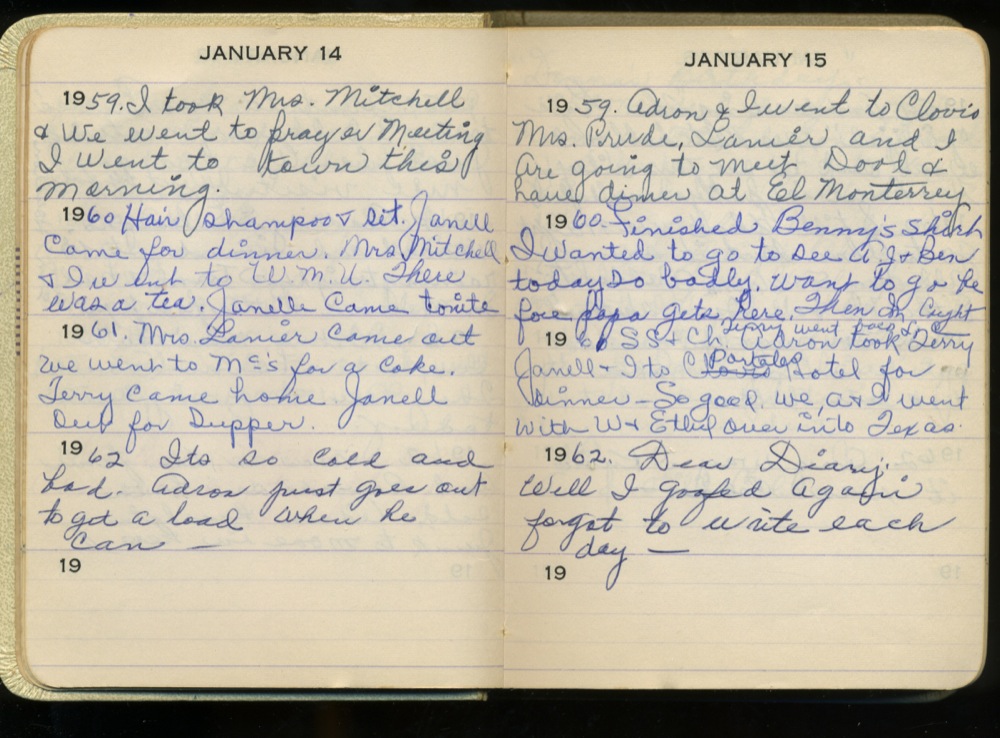 JANUARY 14
1959. I took Mrs. Mitchell
& We went to prayer Meeting
I Went to town this
morning.
1960 Hair shampoo & set. Janell
Came for dinner. Mrs Mitchell
& I went to W.M.U. There
was a tea. Janelle Came tonite
1961. Mrs. Lanier came out
we went to Mc's for a coke.
Terry came home. Janell
Out for Supper.
1962 Its so cold and
bad. Adron just goes out
to get a load when he
can —
19
JANUARY 15
1959. Adron & I went to Clovis
Mrs. Prude, Lanier and I
are going to meet Dool &
have dinner at El Monterrey
1960. Finished Benny's shirt
I wanted to go to see A.J. & Ben
today so badly. want to go be
fore papa gets here. Then In Eight
Terry went back &
1961 SS & Ch. Adron took Terry
Portales
Janell & I to Hotel for
Dinner — So good. We, A & I went
with W & Ethel over into Texas.
1962. Dear Diary:
Well I goofed Again
forgot to write each
day —
19